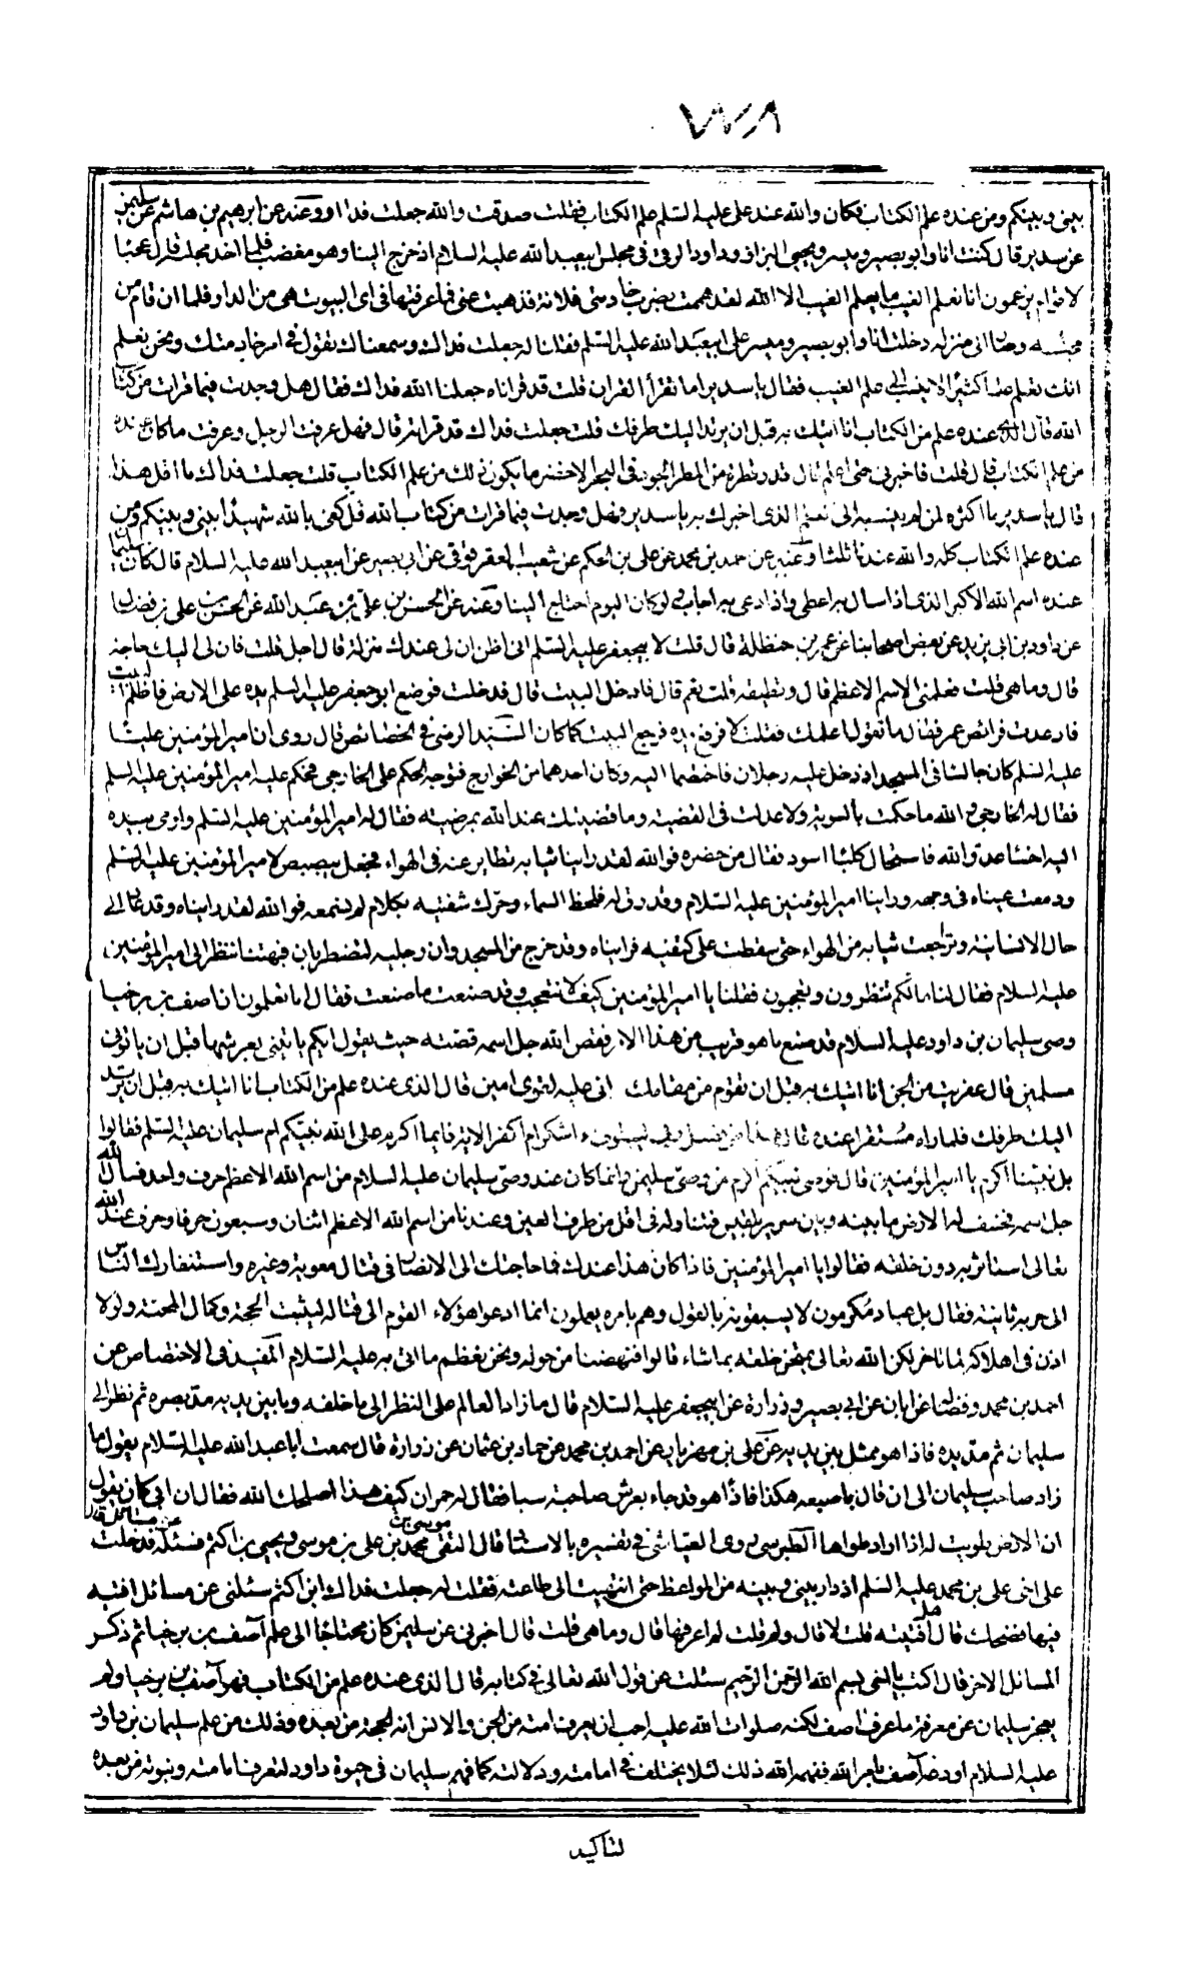 ٧٧٨
بينى وبينكم ومن عنده علم الكتاب فكان والله عند على عليه السّلم علم الكتاب فقلت صدقت والله جعلت فداك وعنه عن ابرهيم بن هاشم عن سليمن
عن سدير قال كنت انا وابو بصير وميسر ويحيى البزاز وداود الرقى فى مجلس ابيعبد الله عليه السلام اذ خرج الينا وهو مغضب فلما اخذ مجلسه قال يا عجبا
لاقوام يزعمون انا نعلم الغيب ما يعلم الغيب الا الله لقد هممت بضرب خادمتى فلانة فذهبت عنى فما عرفتها فى اى البيوت هى من الدار فلما ان قام من
مجلسه وصار الى منزله دخلت انا وابو بصير وميسر على ابيعبد الله عليه السّلم فقلنا له جعلت فداك وسمعناك تقول فى امر خادمتك ونحن نعلم
انك تعلم علما كثيرا لا ينسب الى علم الغيب فقال يا سدير اما تقرأ القران قلت قد قراناه جعلنا الله فداك فقال هل وجدت فيما قرات من كتاب
الله قال الذى عنده علم من الكتاب انا اتيك به قبل ان يرتد اليك طرفك قلت جعلت فداك قد قراته قال فهل عرفت الرجل وعرفت ما كان عنده
من علم الكتاب قال قلت فاخبرنى حتى اعلم قال قدر قطرة من المطر الجود فى البحر الاخضر ما يكون ذلك من علم الكتاب قلت جعلت فداك ما اقل هذا
قال يا سدير ما اكثره لمن لم ينسبه الى العلم الذى اخبرك به يا سدير فهل وجدت فيما قرات من كتاب الله قل كفى بالله شهيدا بينى وبينكم ومن
عنده علم الكتاب كله والله عندنا ثلثا وعنه عن احمد بن محمد عن على بن الحكم عن شعيب العقرقوفى عن ابى بصير عن ابيعبد الله عليه السلام قال كان سليمان
عنده اسم الله الاكبر الذى اذا سال به اعطى واذا دعى به اجاب ولو كان اليوم احتاج الينا وعنه عن الحسن بن على بن عبد الله عن الحسن بن على بن فضال
عن داود بن ابى يزيد عن بعض اصحابنا عن عمر بن حنظلة قال قلت لابيجعفر عليه السّلم انى اظن ان لى عندك منزلة قال اجل قلت فان لى اليك حاجة
قال وما هى قلت تعلمنى الاسم الاعظم قال وتطيقه قلت نعم قال فادخل البيت قال فدخلت فوضع ابو جعفر عليه السّلم يده على الارض فاظلم البيت
فارعدت فرائص عمر فقال ما تقول اعلمك فقلت لا فرفع يده فرجع البيت كما كان السّيد الرضى فى الخصائص قال روى ان امير المؤمنين عليا
عليه السّلم كان جالسا فى المسجد اذ دخل عليه رجلان فاختصما اليه وكان احدهما من الخوارج فتوجه الحكم على الخارجى فحكم عليه امير المؤمنين عليه السلم
فقال له الخارجى والله ما حكمت بالسوية ولا عدلت فى القضية وما قضيتك عند الله بمرضية فقال له امير المؤمنين عليه السّلم واومى بيده
اليه اخسا عدو الله فاستحال كلبا اسود فقال من حضره فوالله لقد راينا ثيابه تطاير عنه فى الهواء فجعل يبصبص لامير المؤمنين عليه السّلم
ودمعت عيناه فى وجهه وراينا امير المؤمنين عليه السّلام وقد رق له فلحظ السماء وحرّك شفتيه بكلام لم نسمعه فوالله لقد رايناه وقد عاد الى
حال الانسانية وتراجعت ثيابه من الهواء حتى سقطت على كتفيه فرايناه وقد خرج من المسجد وان رجليه لتضطربان فبهتنا ننظر الى امير المؤمنين
عليه السلام فقال لنا مالكم تنظرون وتعجبون فقلنا يا امير المؤمنين كيف لا نتعجب وقد صنعت ما صنعت فقال اما تعلمون ان اصف بن برخيا
وصى سليمان بن داود عليه السلام قد صنع ما هو قريب من هذا الامر فقص الله جل اسمه قصته حيث يقول ايكم ياتينى بعرشها قبل ان ياتونى
مسلمين قال عفريت من الجن انا اتيك به قبل ان تقوم من مقامك انى عليه لقوى امين قال الذى عنده علم من الكتاب انا اتيك به قبل ان يرتد
اليك طرفك فلما راه مستقرا عنده قال هذا من فضل ربى ليبلونى ءاشكر ام اكفر الاية فايما اكرم على الله نبيّكم ام سليمان عليه السّلم فقالوا
بل نبيّنا اكرم يا امير المؤمنين قال فوصى نبيّكم اكرم من وصى سليمن وانما كان عند وصى سليمان عليه السلام من اسم الله الاعظم حرف واحد فسال الله
جل اسمه فخسف له الارض ما بينه وبين سرير بلقيس فتناوله فى اقل من طرف العين وعندنا من اسم الله الاعظم اثنان وسبعون حرفا وحرف عند الله
تعالى استاثر به دون خلقه فقالوا يا امير المؤمنين فاذا كان هذا عندك فما حاجتك الى الانصار فى قتال معوية وغيره واستنفارك الناس
الى حربه ثانية فقال بل عباد مكرمون لا يسبقونه بالقول وهم بامره يعملون انما ادعوا هؤلاء القوم الى قتاله ليثبت الحجة وكمال المحنة ولو لا
اذن فى اهلاكه لما تاخر لكن الله تعالى يمتحن خلقه بما شاء قالوا فنهضنا من حوله ونحن نعظم ما اتى به عليه السّلام المفيد فى الاختصاص عن
احمد بن محمد وفضالة عن ابان عن ابى بصير وزرارة عن ابيجعفر عليه السّلام قال ما زاد العالم على النظر الى ما خلفه وما بين يديه مد بصره ثم نظر الى
سليمان ثم مد يده فاذا هو ممثل بين يديه عن على بن مهزيار عن احمد بن محمد عن حماد بن عثمان عن زرارة قال سمعت ابا عبد الله عليه السّلام يقول ما
زاد صاحب سليمان الى ان قال باصبعه هكذا فاذا هو قد جاء بعرش صاحبة سبا فقال له حمران كيف هذا اصلحك الله فقال ان ابى كان يقول
ان الارض طويت له اذا اراد طواها الطبرسى روى العياشى فى تفسيره بالاسناد قال التقى موسى بن محمد بن على بن موسى ويحيى بن اكثم فسئله عن مسائل قال فدخلت
على اخى على بن محمد عليه السّلم اذ دار بينى وبينه من المواعظ حتى انتهيت الى طاعته فقلت له جعلت فداك ان ابن اكثم سئلنى عن مسائل افتيه
فيها فضحك قال هل افتيته قلت لا قال ولم قلت لم اعرفها قال وما هى قلت قال اخبرنى عن سليمن كان محتاجا الى علم آصف بن برخيا ثم ذكر
المسائل الاخر قال اكتب يا اخى بسم الله الرحمن الرحيم سئلت عن قول الله تعالى فى كتابه قال الذى عنده علم من الكتاب فهو آصف بن برخيا ولم
يعجز سليمان عن معرفة ما عرف اصف لكنه صلوات الله عليه احب ان يعرف امته من الجن والانس انه الحجة من بعده وذلك من علم سليمان بن داود
عليه السلام اودعه آصف بامر الله ففهمه الله ذلك لئلا يختلف فى امامته ودلالته كما فهم سليمان فى حيوة داود لتعرف امامته ونبوته من بعده
لتاكيد